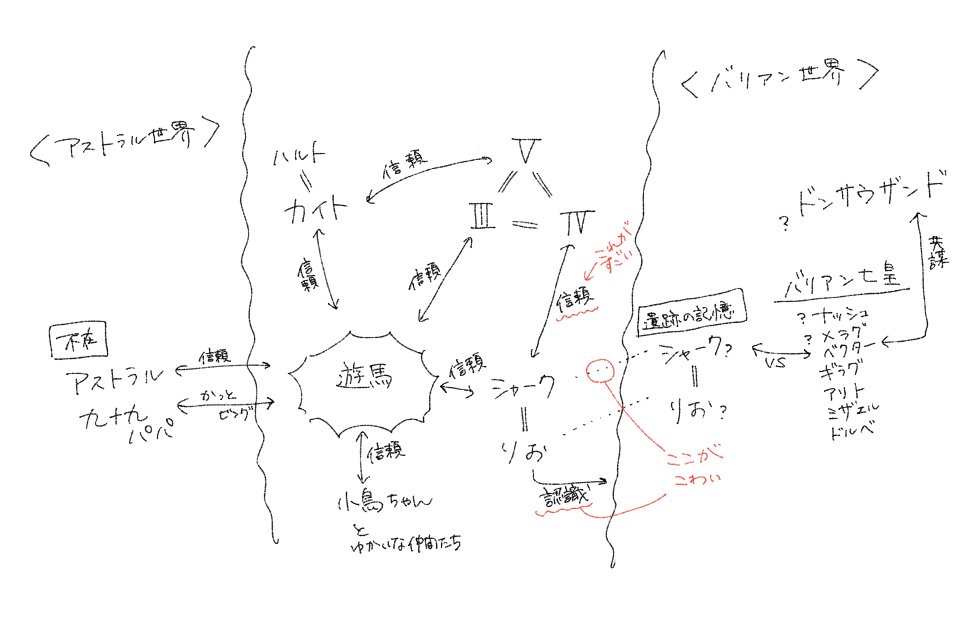 <バリアン世界>
<アストラル世界>
ハルト
カイト
信頼
V
III
IV
信頼
信頼
これが
すごい
信頼
?ドンサウザンド
共謀
バリアン七皇
?ナッシュ
?メラグ
ベクター
ギラグ
アリト
ミザエル
ドルベ
遺跡の記憶
シャーク?
VS
りお?
不在
アストラル
信頼
九十九
パパ
かっと
ビング
遊馬
信頼
シャーク
りお
認識
ここが
こわい
信頼
小鳥ちゃん
と
ゆかいな仲間たち